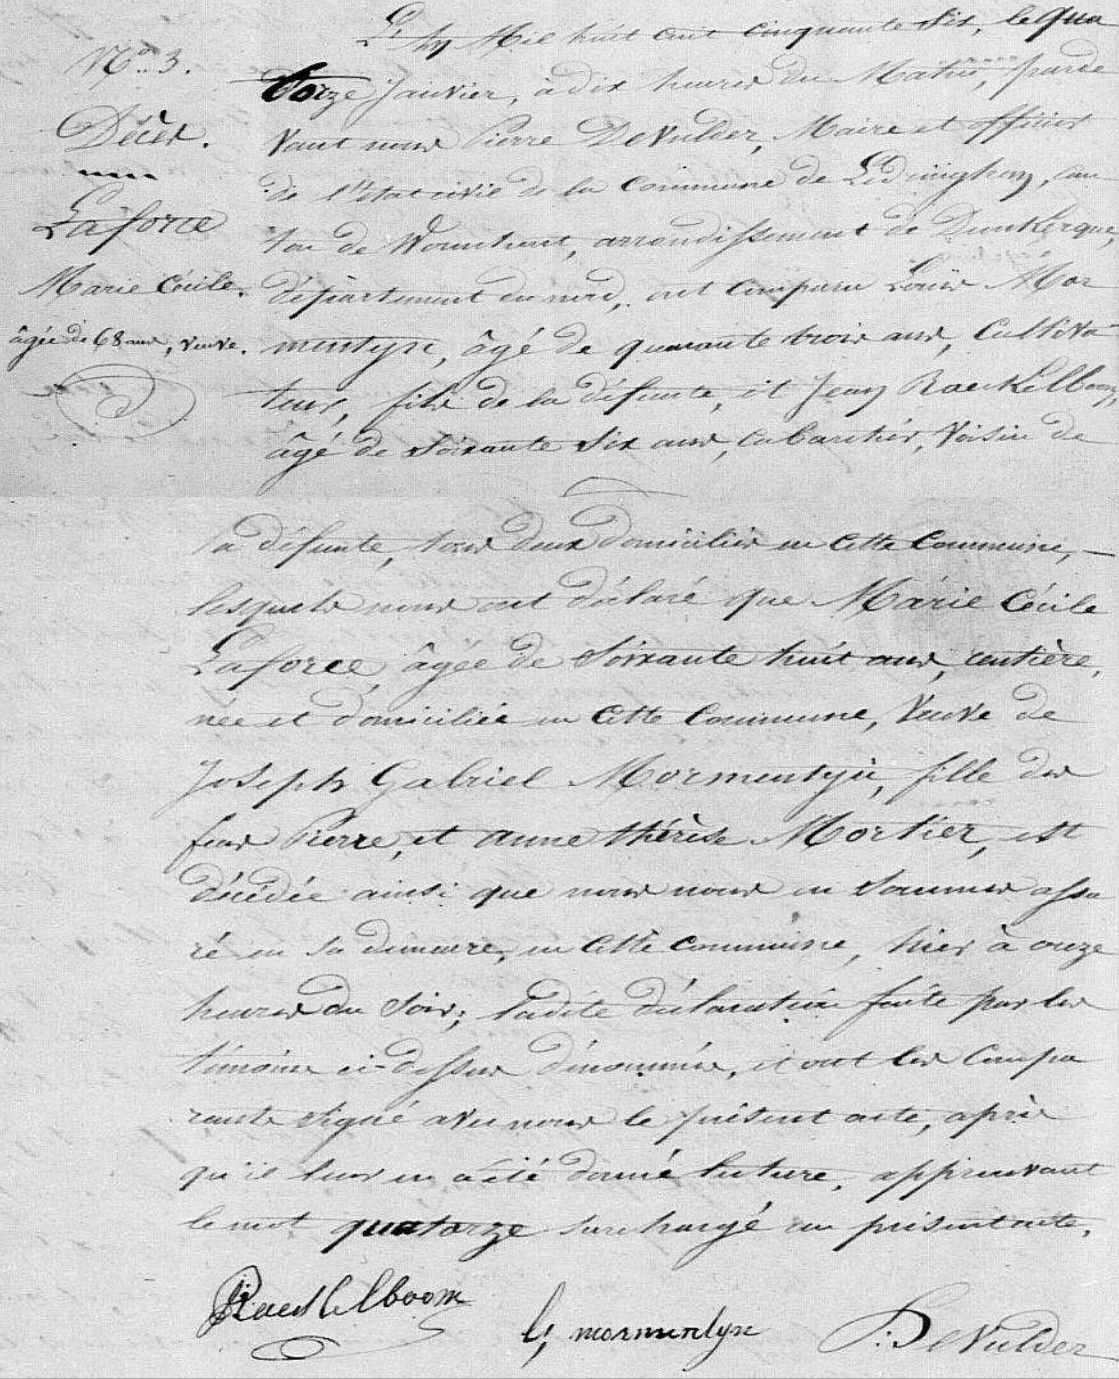 N.° 3.
Décès.
Laforce
Marie Cécile.
âgée de 68 ans, veuve.
L'an Mil huit cent cinquante six, le qua
torze Janvier, à dix heures du Matin, parde
vant nous Pierre DeVulder, Maire et officier
de l'état civil de la commune de Ledringhem, can
ton de Wormhout, arrondissement de Dunkerque,
département du nord, ont comparu Louis Mor
mentyn, âgé de quarante trois ans, Cultiva
teur, fils de la défunte, et Jean Raeckelboom,
âgé de Soixante Six ans, cabaretier, Voisin de
la défunte, tous deux domiciliés en cette Commune, —
lesquels nous ont déclaré que Marie Cécile
Laforce, âgée de Soixante huit ans, rentière,
née et domiciliée en cette commune, Veuve de
Joseph Gabriel Mormentyn, fille des
feus Pierre, et anne thérèse Mortier, est
décédée ainsi que nous nous en sommes assu
ré en sa demeure, en cette commune, hier à onze
heures du Soir; ladite déclaration faite par les
témoins ci-dessus dénommés, et ont les Compa
rants signé avec nous le présent acte, après
qu'il leur en a été donné lecture, approuvant
le mot quatorze surchargé au présent acte.
J Raeckelboom
L, mormentyn
P. DeVulder